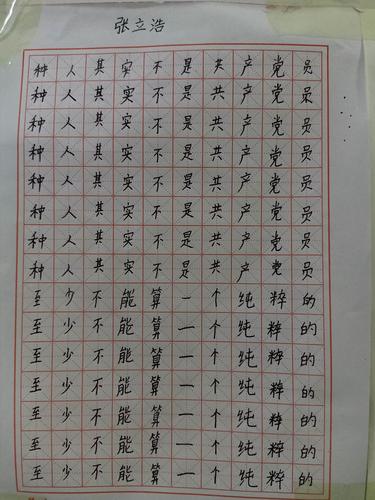 张立浩
种人其实不是共产党员
种人其实不是共产党员
种人其实不是共产党员
种人其实不是共产党员
种人其实不是共产党员
种人其实不是共产党员
种人其实不是共产党员
种人其实不是共产党员
至少不能算一个纯粹的
至少不能算一个纯粹的
至少不能算一个纯粹的
至少不能算一个纯粹的
至少不能算一个纯粹的
至少不能算一个纯粹的
至少不能算一个纯粹的